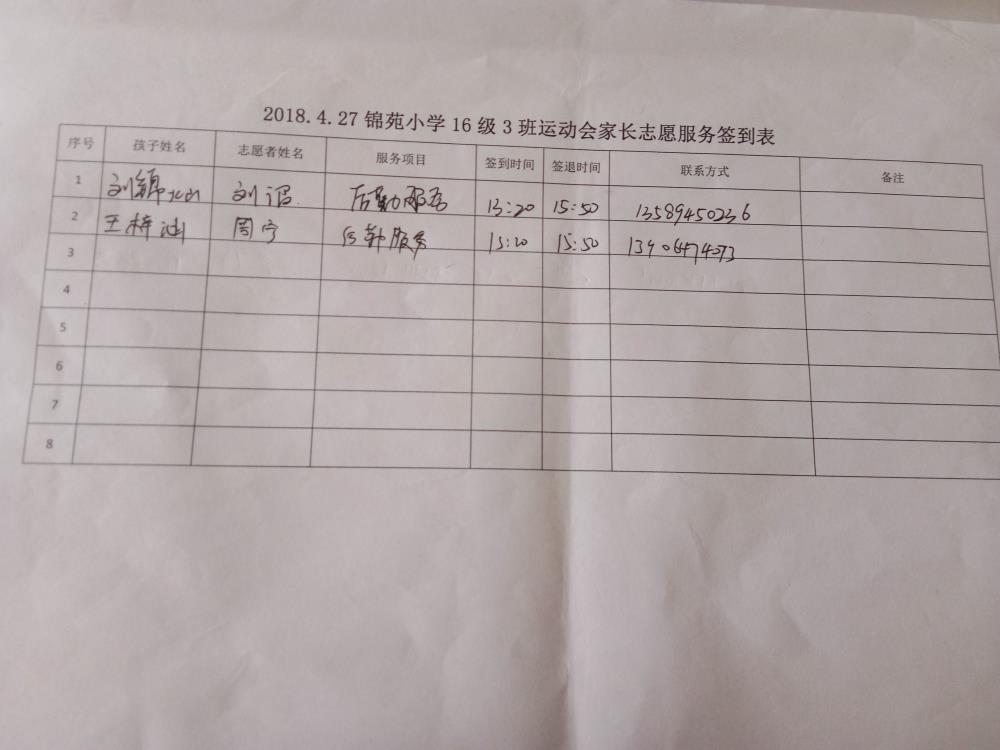 2018.4.27 锦苑小学 16 级 3 班运动会家长志愿服务签到表
序号 孩子姓名 志愿者姓名 服务项目 签到时间 签退时间 联系方式 备注
1 刘 刘 后勤服务 13:20 15:50 13589450236
2 王梓涵 周宁 后勤服务 13:20 15:50 13906474073
3
4
5
6
7
8